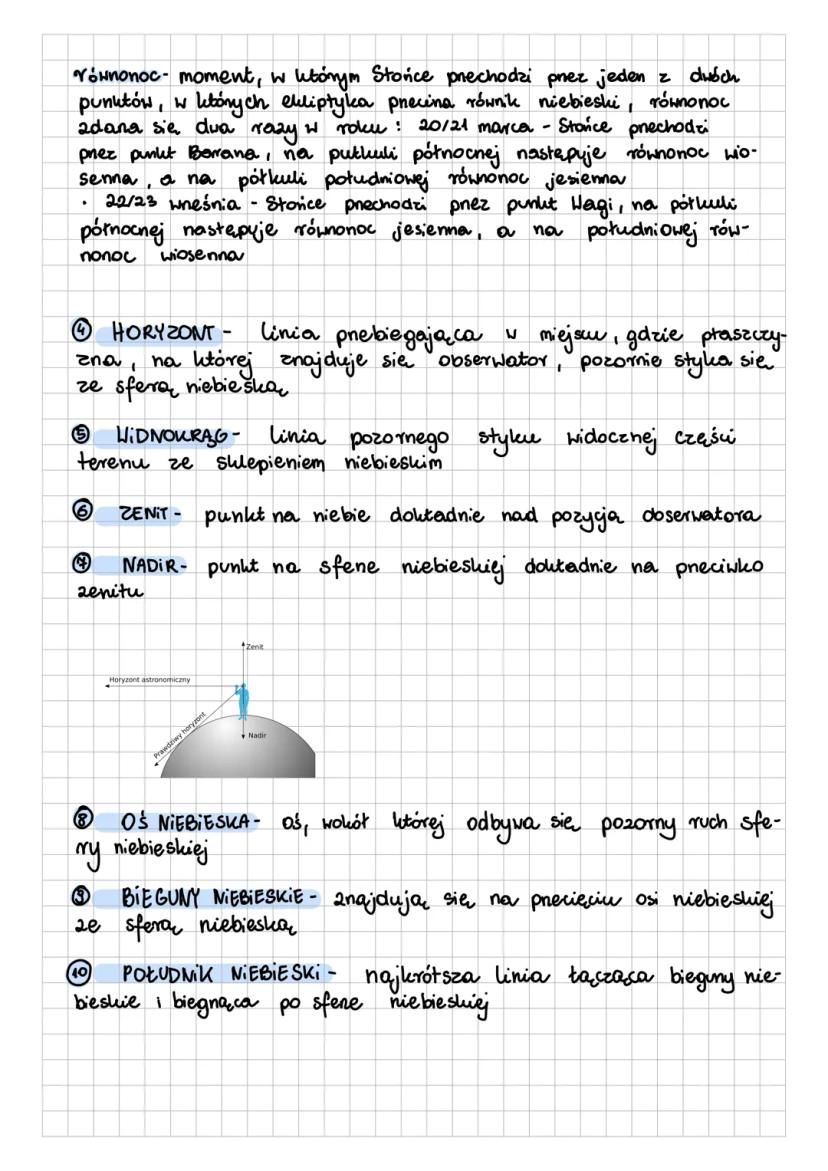 równonoc - moment, w którym Słońce przechodzi przez jeden z dwóch
punktów, w których ekliptyka przecina równik niebieski, równonoc
zdarza się dwa razy w roku: 20/21 marca - Słońce przechodzi
przez punkt Barana, na pułkuli północnej następuje równonoc wio-
senna, a na półkuli południowej równonoc jesienna
· 22/23 września - Słońce przechodzi przez punkt Wagi, na półkuli
północnej następuje równonoc jesienna, a na południowej rów-
nonoc wiosenna
④ HORYZONT - linia przebiegająca w miejscu, gdzie płaszczy-
zna, na której znajduje się obserwator, pozornie styka się
ze sferą niebieską
⑤ WIDNOKRĄG - linia pozornego styku widocznej części
terenu ze sklepieniem niebieskim
⑥ ZENIT - punkt na niebie dokładnie nad pozycją obserwatora
⑦ NADIR - punkt na sferze niebieskiej dokładnie na przeciwko
zenitu
Zenit
Horyzont astronomiczny
Prawdziwy horyzont
Nadir
⑧ OŚ NIEBIESKA - oś, wokół której odbywa się pozorny ruch sfe-
ry niebieskiej
⑨ BIEGUNY NIEBIESKIE - znajdują się na przecięciu osi niebieskiej
ze sferą niebieską
⑩ POŁUDNIK NIEBIESKI - najkrótsza linia łącząca bieguny nie-
bieskie i biegnąca po sferze niebieskiej